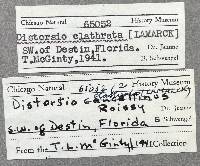 Chicago Natural 65052 History Museum
Distorsio clathrata [LAMARCK]
SW. of Destin, Florida. Dr. Jeanne
T. McGinty, 1941. S. Schwengel
Chicago Natural History Museum
Distorsio
Roissy Dr. Jeanne
S.W. of Destin, Florida S. Schwengel
From the T.L. McGinty 1941 Collection